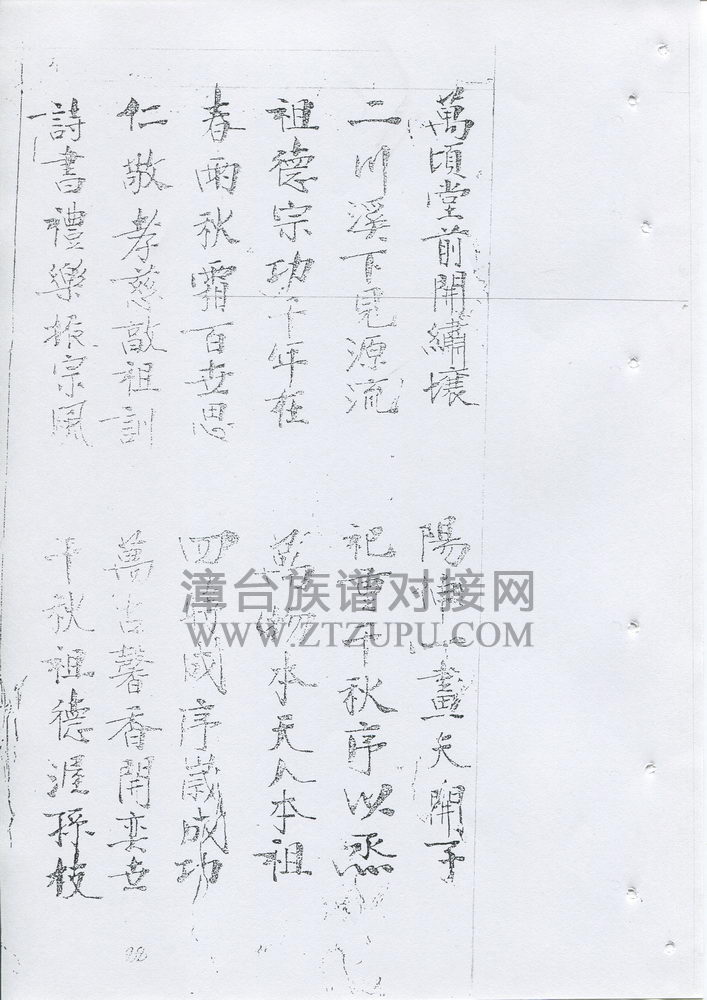 萬頃堂前開繡壤
二川溪下見源流
祖德宗功千年在
春雨秋霜百世思
仁敬孝慈敵祖訓
詩書禮樂振宗風
陽 畫天開子
祀曹千秋序以烝
萬物本天人本祖
四時成序歲成功
萬古馨香開奕世
千秋祖德渥孫枝
漳台族谱对接网
WWW.ZTZUPU.COM